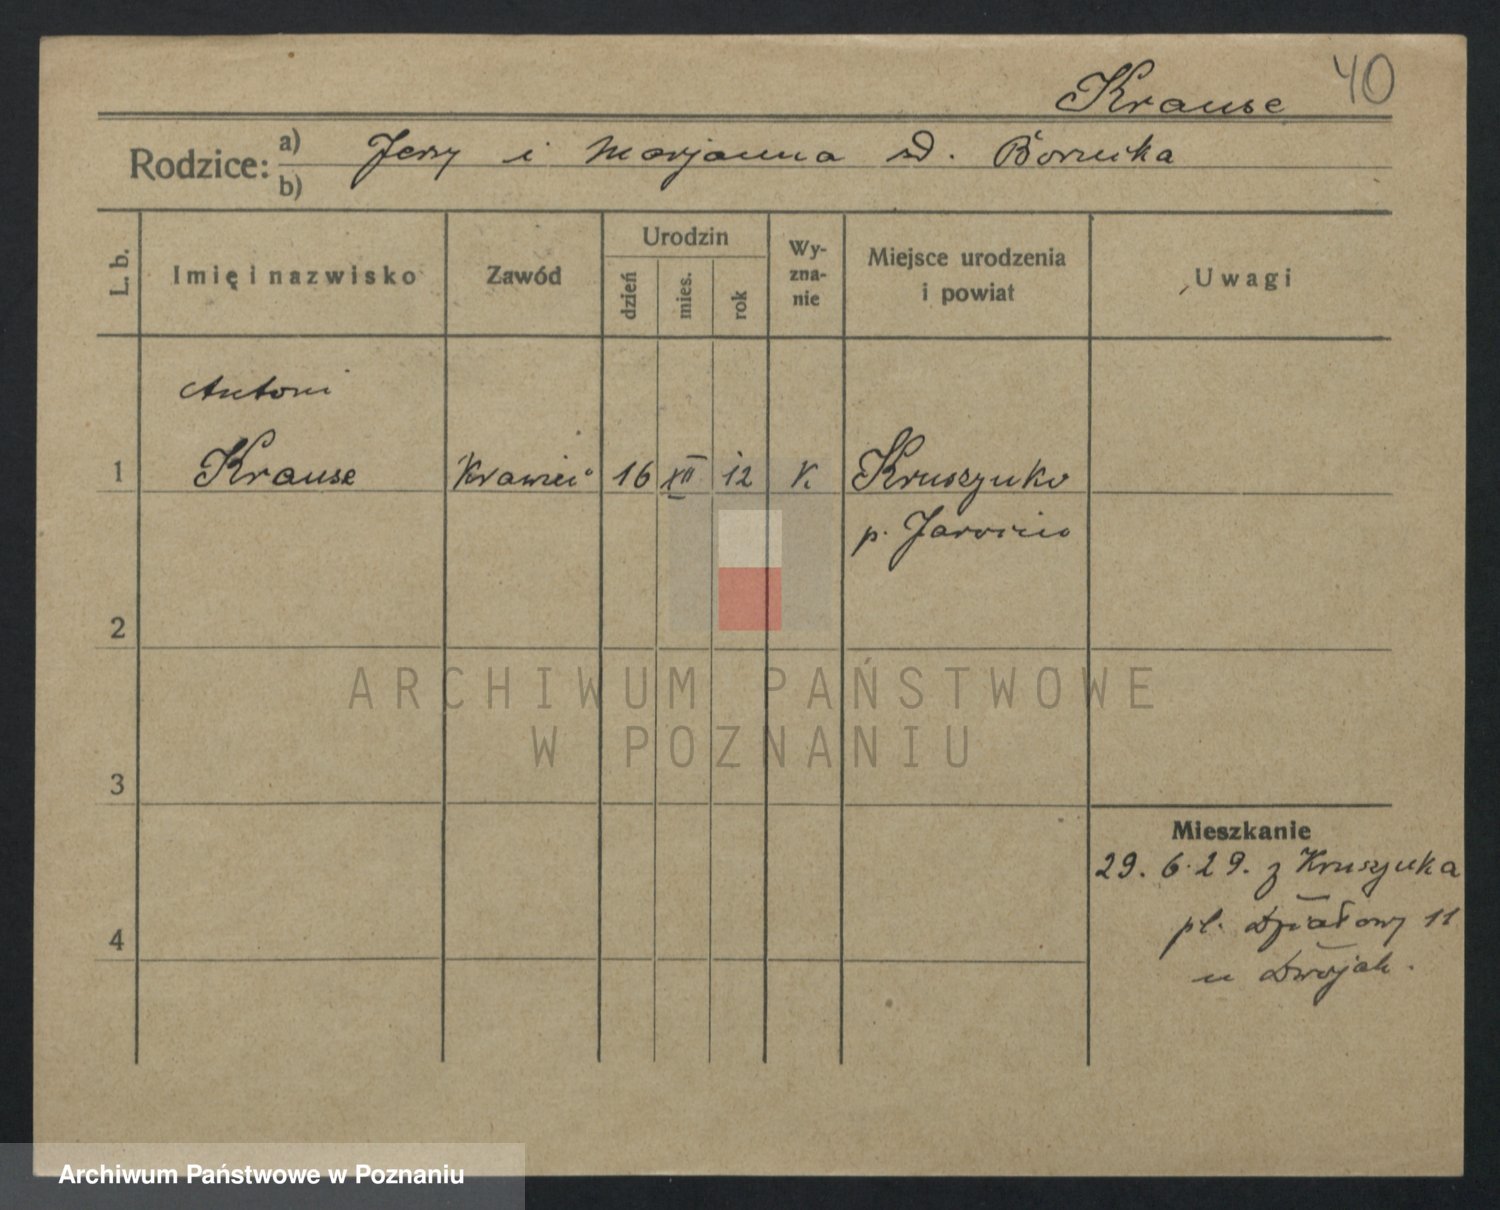 Krause 40
Rodzice: a) Jerzy i Marjanna zd.
b)
L. b.
Imię i nazwisko
Zawód
Urodzin
dzień
mies.
rok
Wy-
zna-
nie
Miejsce urodzenia
i powiat
Uwagi
Antoni
1 Krause Krawiec 16 XII 12 K Kruszynko
p. Jarocin
2
3
4
Mieszkanie
29. 6. 29. z
pl. Działowy 11
u
ARCHIWUM PAŃSTWOWE
W POZNANIU
Archiwum Państwowe w Poznaniu